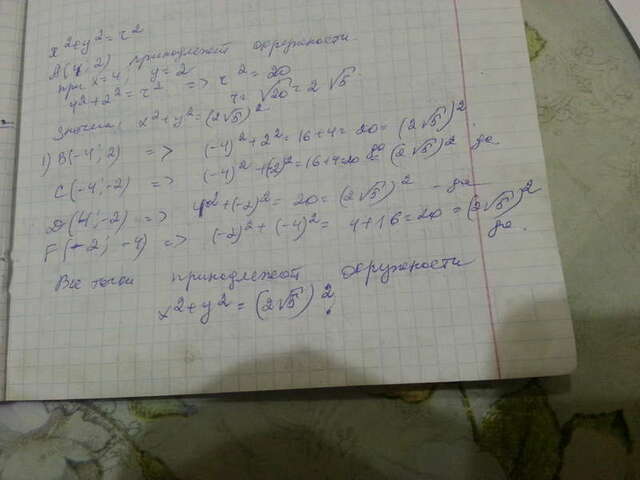 x²+y²=r²
A(4; 2) принодлежат окружности.
при x=4, y=2
4²+2²=r² => r²=20
r=√20=2√5.
Значит, x²+y²=(2√5)²
1) B(-4; 2) => (-4)²+2²=16+4=20=(2√5)² да
C(-4; -2) => (-4)²+(-2)²=16+4=20=(2√5)² да.
D(4; -2) => 4²+(-2)²=20=(2√5)² - да
F(-2; -4) => (-2)²+(-4)²=4+16=20=(2√5)² да.
Все точки принодлежат окружности
x²+y²=(2√5)².